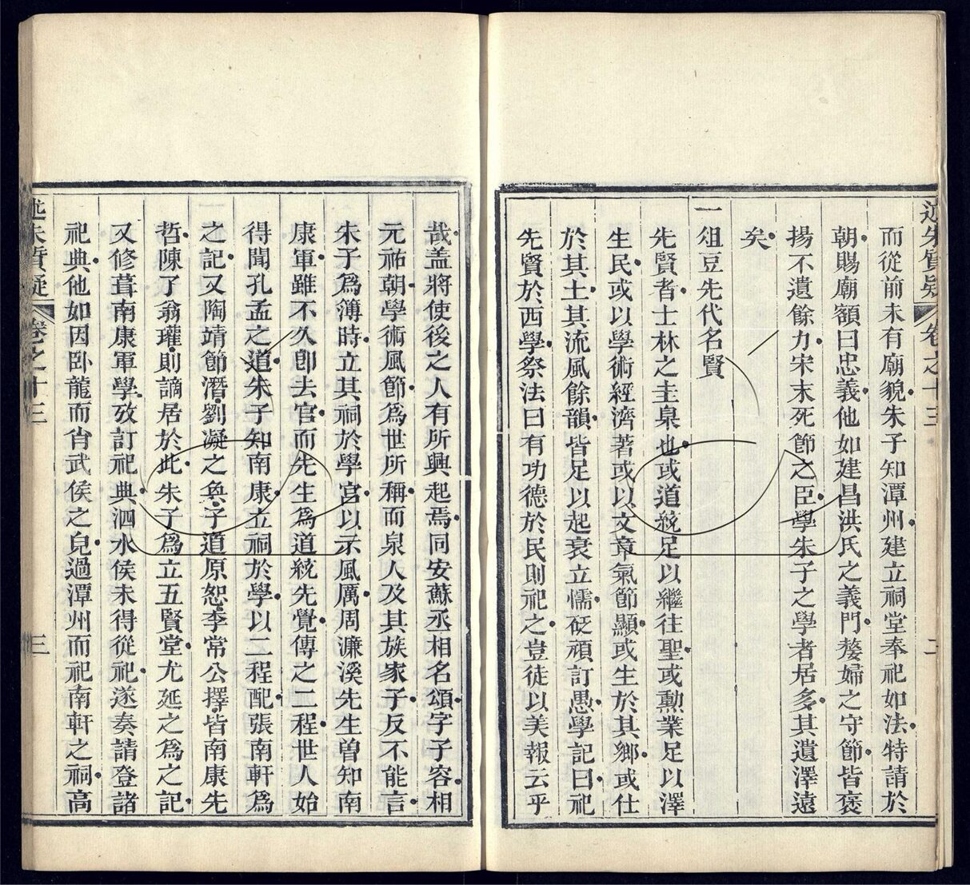 述朱質疑 卷之十三 二
而從前未有廟貌朱子知潭州建立祠堂奉祀如法特請於
朝賜廟額曰忠義他如建昌洪氏之義門嫠婦之守節皆褒
揚不遺餘力宋末死節之臣學朱子之學者居多其遺澤遠
矣
一俎豆先代名賢
先賢者士林之圭臬也或道統足以繼往聖或勳業足以澤
生民或以學術經濟著或以文章氣節顯或生於其鄉或仕
於其土其流風餘韻皆足以起衰立懦砭頑訂愚學記曰祀
先賢於西學祭法曰有功德於民則祀之豈徒以美報云乎
哉蓋將使後之人有所興起焉同安蘇丞相名頌字子容相
元祐朝學術風節為世所稱而泉人及其族家子反不能言
朱子為簿時立其祠於學宮以示風厲周濂溪先生曾知南
康軍雖不久卽去官而先生為道統先覺傳之二程世人始
得聞孔孟之道朱子知南康立祠於學以二程配張南軒為
之記又陶靖節潛劉凝之奐子道原恕李常公擇皆南康先
哲陳了翁瓘則謫居於此朱子為立五賢堂尤延之為之記
又修葺南康軍學攷訂祀典泗水侯未得從祀遂奏請登諸
祀典他如因卧龍而肖武侯之皃過潭州而祀南軒之祠高
述朱質疑 卷之十三 三